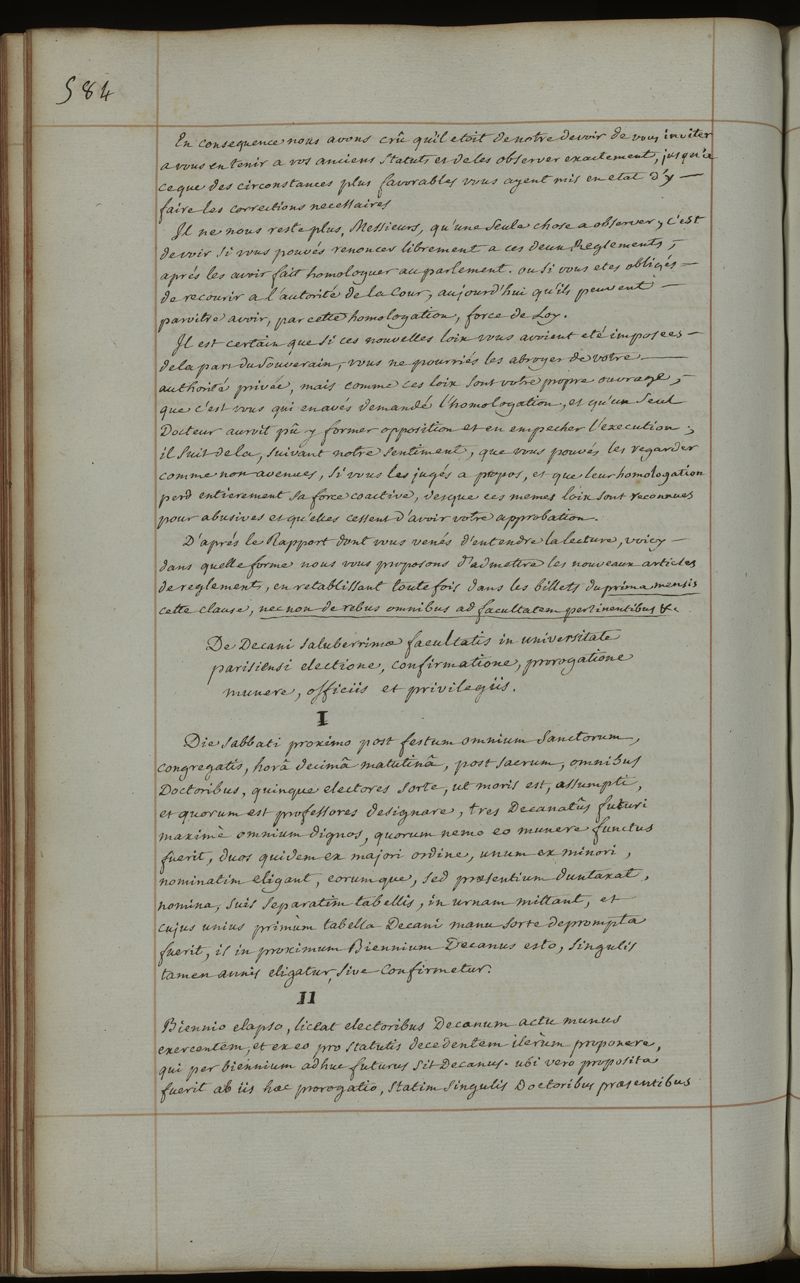 584
En consequence nous avons crû qu'il etoit de notre devoir de vous inviter
a vous en tenir a vos anciens Statuts et de les observer exactement, jusqu'a
ce que des circonstances plus favorables vous ayent mis en etat d'y —
faire les corrections necessaires
Il ne nous reste plus, Messieurs, qu'une seule chose a observer, c'est
de voir si vous pouvés renoncer librement a ces deux Reglements, —
aprés les avoir fait homologuer au parlement. ou si vous etes obligés —
de recourir a l'autorité de la Cour, aujourd'hui qu'ils peuvent —
paroitre avoir, par cette homologation, force de Loy.
Il est certain que si ces nouvelles loix vous avoient eté imposees —
de la part du Souverain, vous ne pourriés les abroger de votre —
authorité privée, mais comme ces loix sont votre propre ouvrage, —
que c'est vous qui en avés demandé l'homologation, et qu'un seul
Docteur auroit pû y former opposition et en empecher l'execution ;
il suit de la, suivant notre sentiment, que vous pouvés les regarder
comme non avenues, si vous les jugés a propos, et que leur homologation
perd entierement sa force coactive, desque ces memes loix sont reconnues
pour abusives et qu'elles cessent d'avoir votre approbation.
D'aprés le Rapport dont vous venés d'entendre la lecture, voicy —
dans quelle forme nous vous proposons d'admettre les nouveaux articles
de reglement, en retablissant toute fois dans les billets du prima mensis
cette clause, nec non de rebus omnibus ad facultatem pertinentibus &c
De Decani saluberrimæ facultatis in universitate
parisiensi electione, confirmatione, prorogatione
munere, officiis et privilegiis.
I
Die Sabbati proximo post festum omnium Sanctorum,
congregatis, horâ decimâ matutinâ, post sacrum, omnibus
Doctoribus, quinque electores sorte, ut moris est, assumpti,
et quorum est professores designare, tres Decanatûs futuri
maximè omnium dignos, quorum nemo eo munere functus
fuerit, duos quidem ex majori ordine, unum ex minori,
nominatim eligant, eorumque, sed præsentium duntaxat,
nomina, suis separatim tabellis, in urnam mittant, et
cujus unius primùm tabella Decani manu sorte deprompta
fuerit, is in proximum Biennium Decanus esto, singulis
tamen annis eligatur, sive confirmetur.
II
Biennio elapso, liceat electoribus Decanum actu munus
exercentem, et ex eo pro statutis decedentem iterùm proponere,
qui per biennium adhuc futurus sit Decanus. ubi verò proposita
fuerit ab iis hæc prorogatio, statim singulis Doctoribus præsentibus